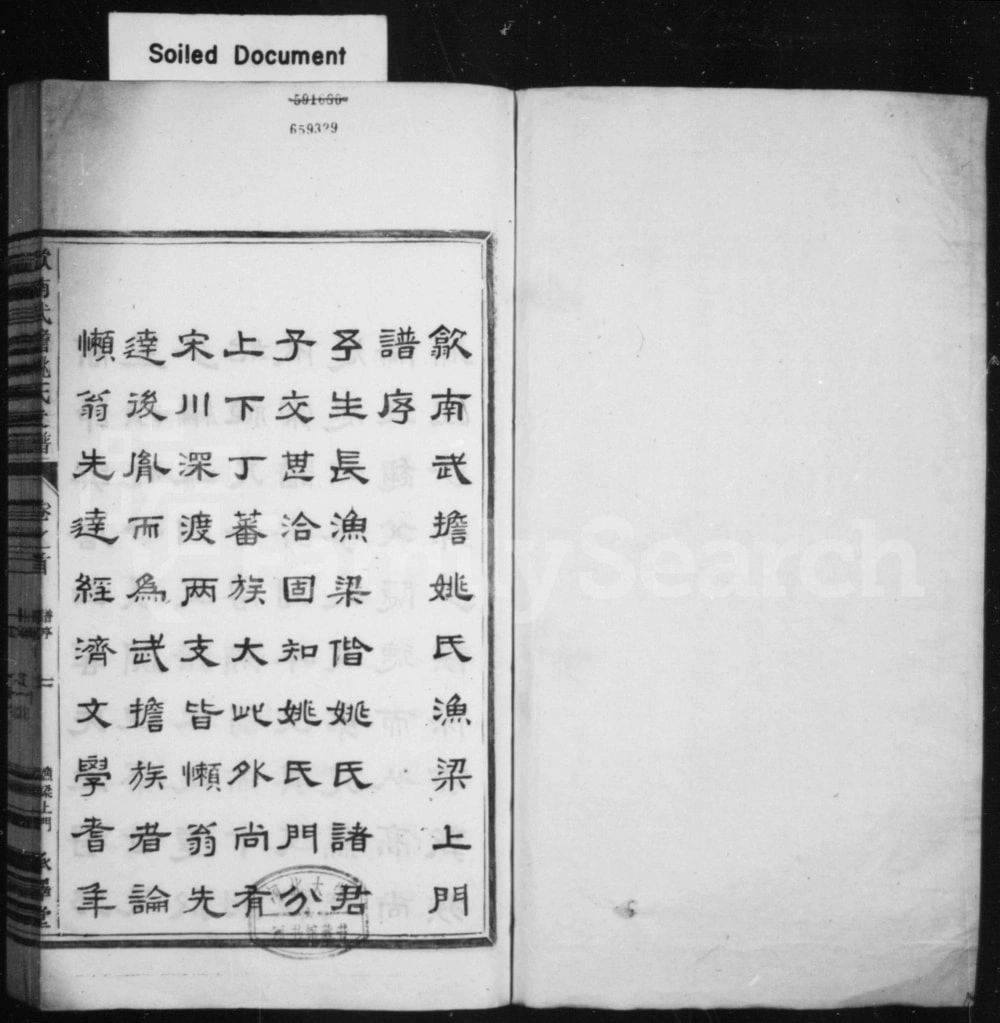 Soiled Document
591680
659329
歙南武擔姚氏漁梁上門
譜序
予生長漁梁偕姚氏諸君
子交甚洽固知姚氏門分
上下丁蕃族大此外尚有
宋川深渡两支皆懶翁先
達後胤而為武擔族者論
懶翁先達經濟文學耆年
歙南武擔姚氏世譜
卷之首
譜序
一
漁梁上門
承學堂
FamilySearch